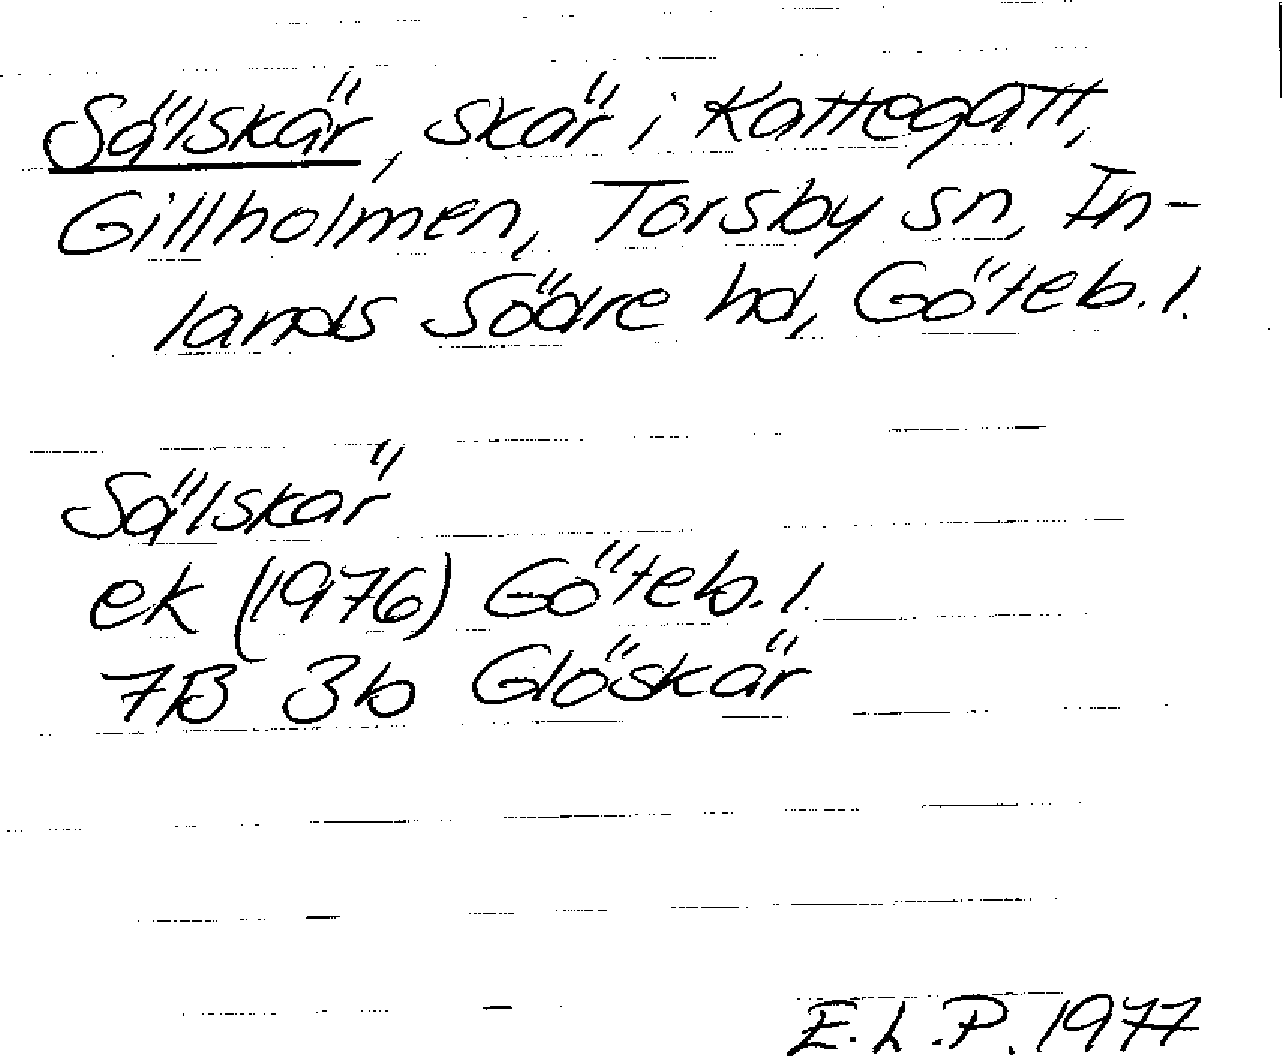 Sälskär, skär i Kattegatt,
Gillholmen, Torsby sn, In-
lands Södre hd, Göteb. l.
Sälskär
ek (1976) Göteb. l.
7B 3b Glöskär
E.L.P. 1977